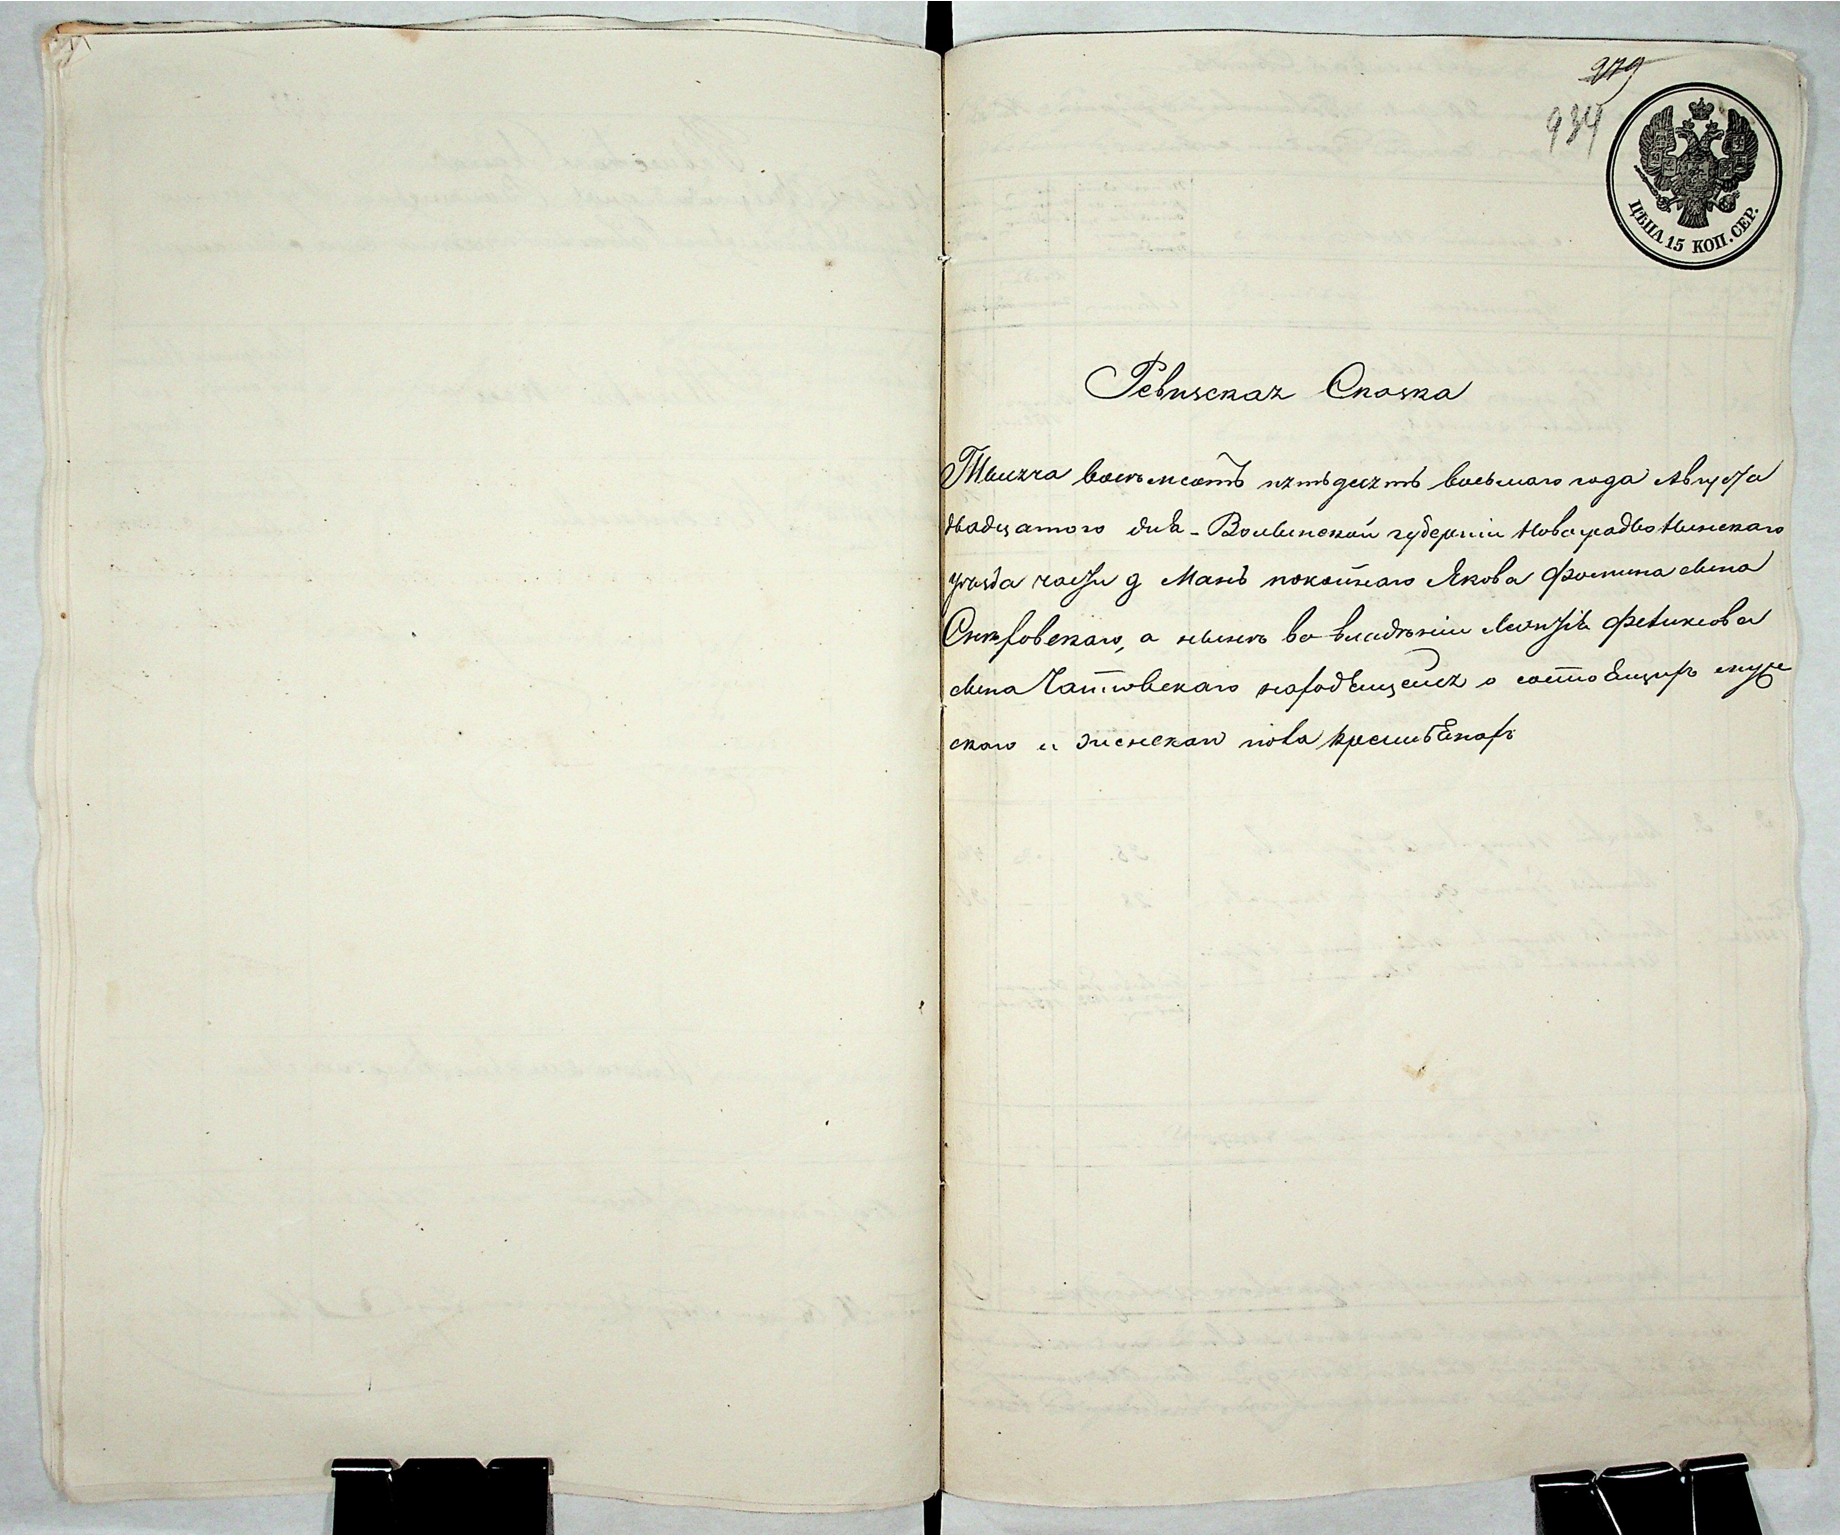 279
934
ЦѢНА 15 КОП. СЕР.
Ревизская Сказка
Тысяча восемьсотъ пятьдесятъ восьмаго года Августа
двадцатого дня - Волынской губерніи Новоградволынскаго
уѣзда части д Мань покойнаго Якова Фомина сына
а нынѣ во владѣніи Леонтія Феликсова
сына находящейся о состоящихъ муже
скаго и женскаго пола крестьянахъ